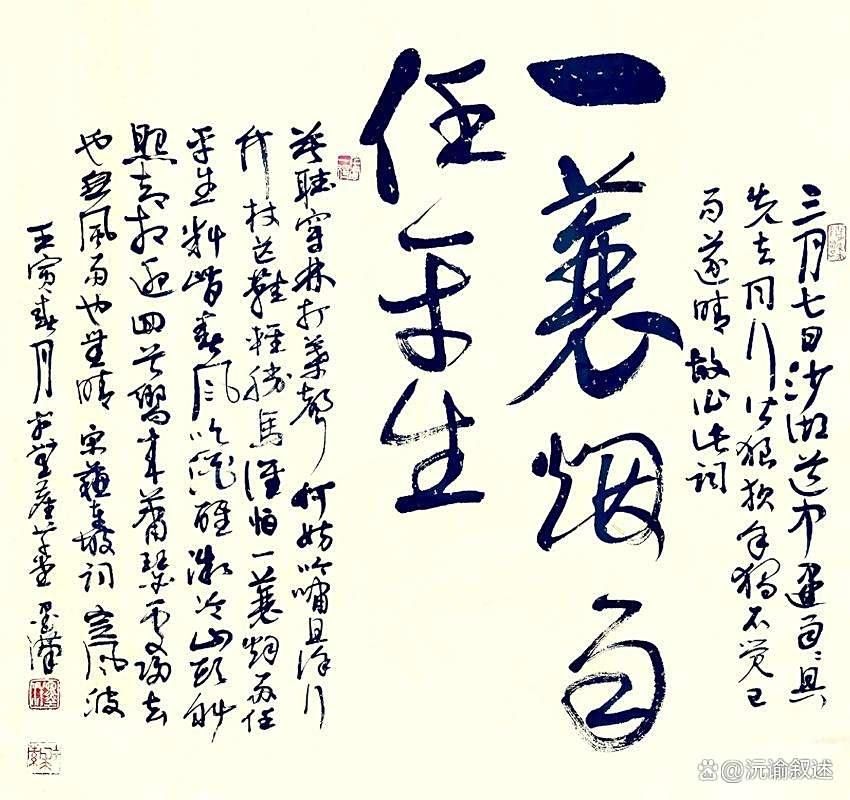 三月七日沙湖道中遇雨々具
先去同行皆狼狈余獨不觉已
而遂晴故作此词
一蓑烟雨
任平生
莫聽穿林打葉聲何妨吟嘯且徐行
竹杖芒鞋輕勝馬誰怕一蓑烟雨任
平生料峭春风吹酒醒微冷山头斜
照却相迎回首嚮来蕭瑟處歸去
也無風雨也無晴宋蘇東坡词定风波
壬寅春月
@沅谕叙述